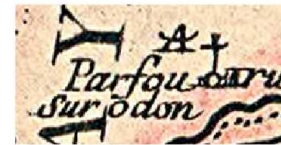 Y
A
Parfou ru
sur odon